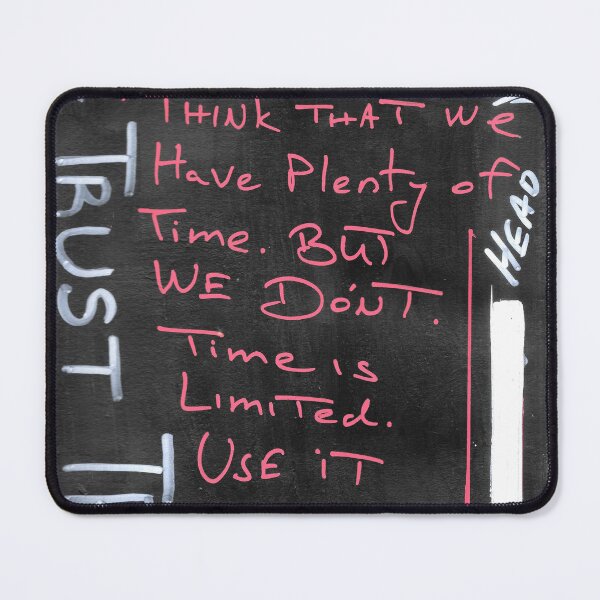 THINK THAT WE
Have Plenty of
Time. BUT
WE DON'T.
Time is
LIMITED.
USE iT
TRUST
HEAD